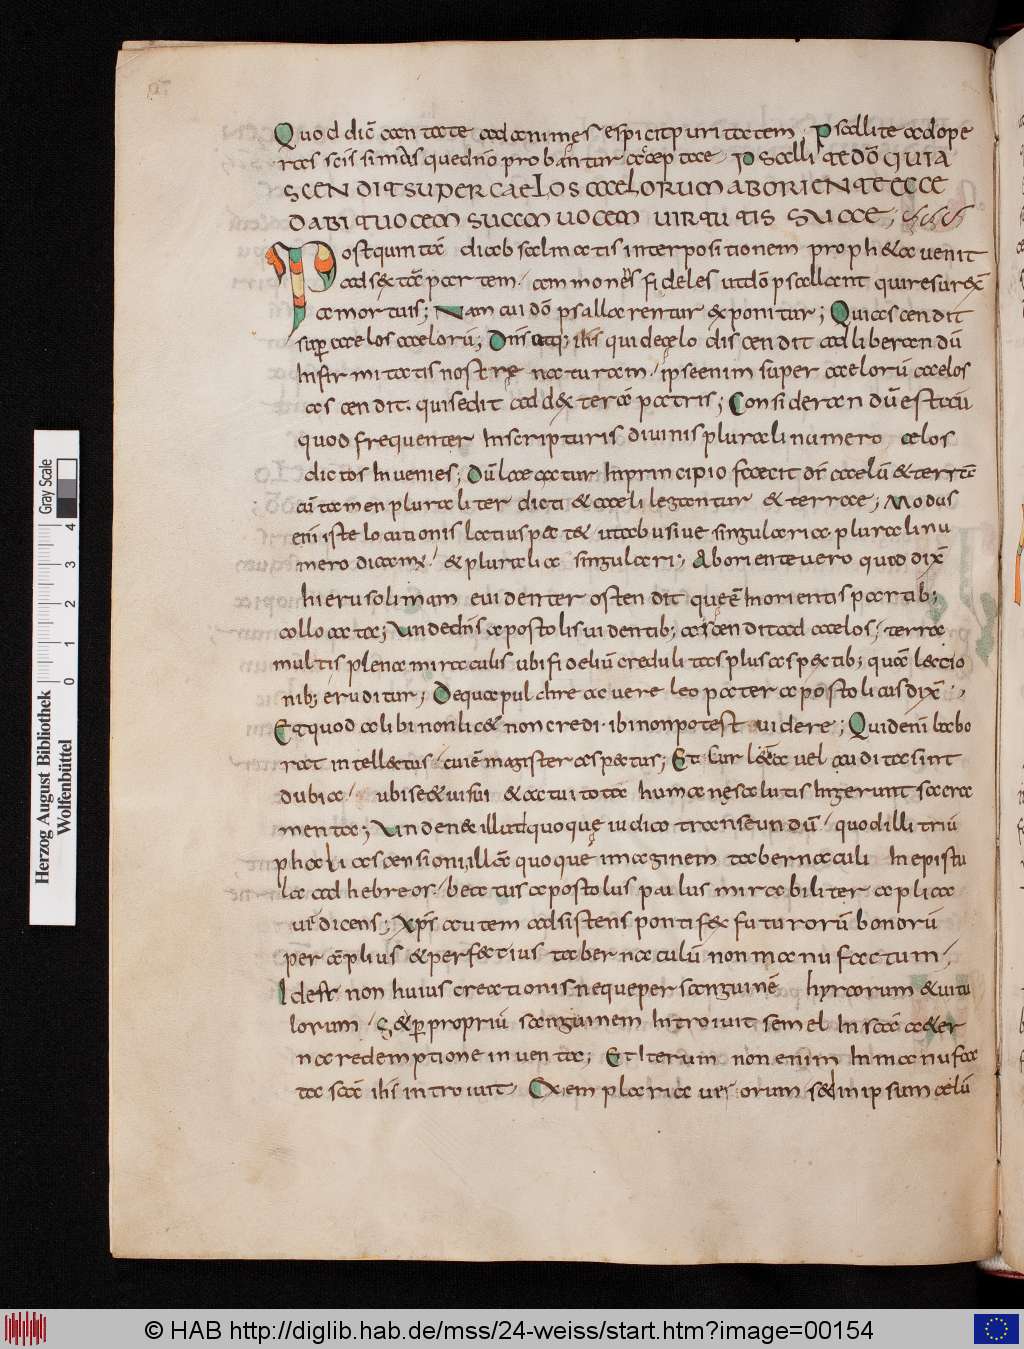 Quod dic̄ cantate ad animęs espicit puritatem, Psallite ad ope
ras scis simas quędn̄o probantur accęptae. Psallite dō quia
scendit super caelos caelorum ab oriente ecce
dabit uocem suam uocem uirtutis suae,
Postqum tā diabsalmatis interpositionem prophæta uenit
ad sextā partem, ammonens fideles ut dō psallant qui resurex̄
a mortuis; Nam cui dō psallarentur exponitur; Qui ascendit
sup caelos caelorū; Dn̄s utiq; ih̄s qui de cęlo discendit ad liberandū
Infirmitatis nostrę naturam, ipse enim super caelorū caelos
ascendit. qui sedit ad dexterā patris; Considerandū est uū
quod frequenter In scripturis diuinis plurali numero cælos
dictos Inuenies; Dū lae actur In principio faecit ds̄ caelū & terrā
cū tamen pluraliter dicti & caeli legantur & terrae; Modus
enī iste locutionis lactius patet ut abusiue singularia plurali nu
mero dicamus, & pluralia singulari; Ab oriente uero quod dix̄
hierusolimam euidenter ostendit quęē In orientis partib;
collocata; Unde dn̄s apostolis uidentib; ascendit ad caelos, terra
multis plena miraculis ubi fideliū creduli tas plus aspectib; quā lectio
nib; eruditur; De qua pulchre ac uere leo pater apostolicus dix̄;
Et quod alibi non licet non credi. ibi non potest uidere; Quid enī labo
rat intellectus, cuiē magister aspectus; Et cur lecta uel audita sint
dubia, ubi se & uisui & actui tota humanę salutis Ingerunt sacra
menta; Unde & illud quoque iudico transeundū, quod illi triū
phali ascensioni, illā quoque imaginem tabernaculi In epistu
la ad hebreos, beatus apostolus paulus mirabiliter aplica
uē dicens; Xp̄s autem adsistens pontifex futurorū bonorū
per āplius & perfectius tabernaculū non manufactum,
Id est non huius creationis neque per sanguinē hyrcorum & uitu
lorum, Sed ꝑ propriū sanguinem Introiuit semel In scā aeter
na redemptione inuenta; Et Iterum non enim In manufac
ta scā ih̄s introiuit, Exemplaria uerorum sed in ipsum cælū
Herzog August Bibliothek
Wolfenbüttel
Gray Scale
0 1 2 3 4
© HAB http://diglib.hab.de/mss/24-weiss/start.htm?image=00154